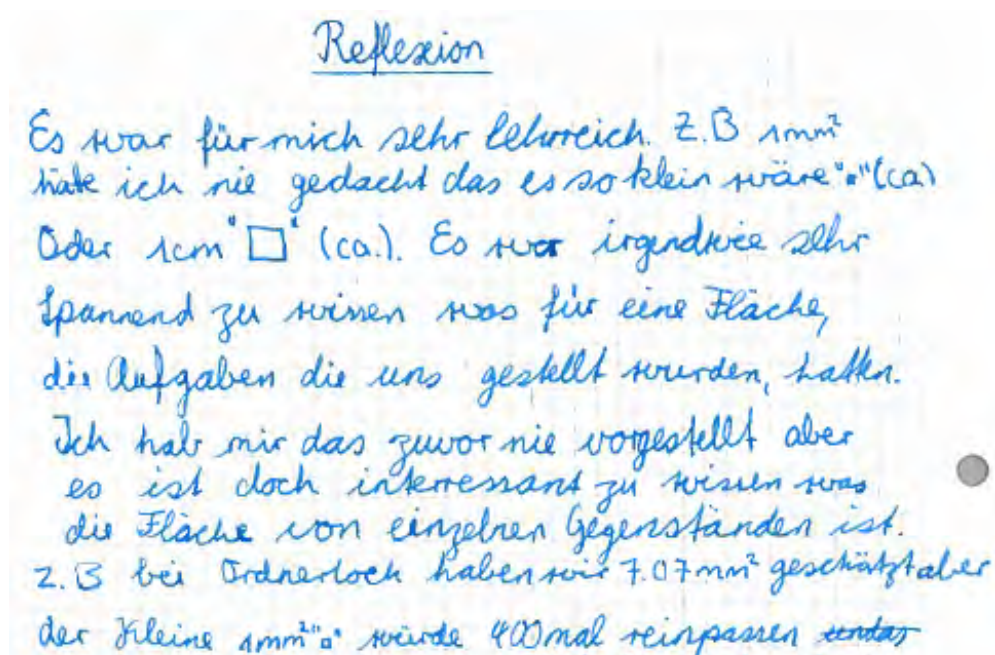 Reflexion
Es war für mich sehr lehrreich. Z.B 1mm²
häte ich nie gedacht das es so klein wäre "▫" (ca)
Oder 1cm "□" (ca.). Es war irgendwie sehr
Spannend zu wissen was für eine Fläche,
die Aufgaben die uns gestellt wurden, hatten.
Ich hab mir das zuvor nie vorgestellt aber
es ist doch interressant zu wissen was
die Fläche von einzelnen Gegenständen ist.
z.B bei Ordnerloch haben wir 7.07mm² geschätzt aber
der Kleine 1mm² "▫" würde 400mal reinpassen